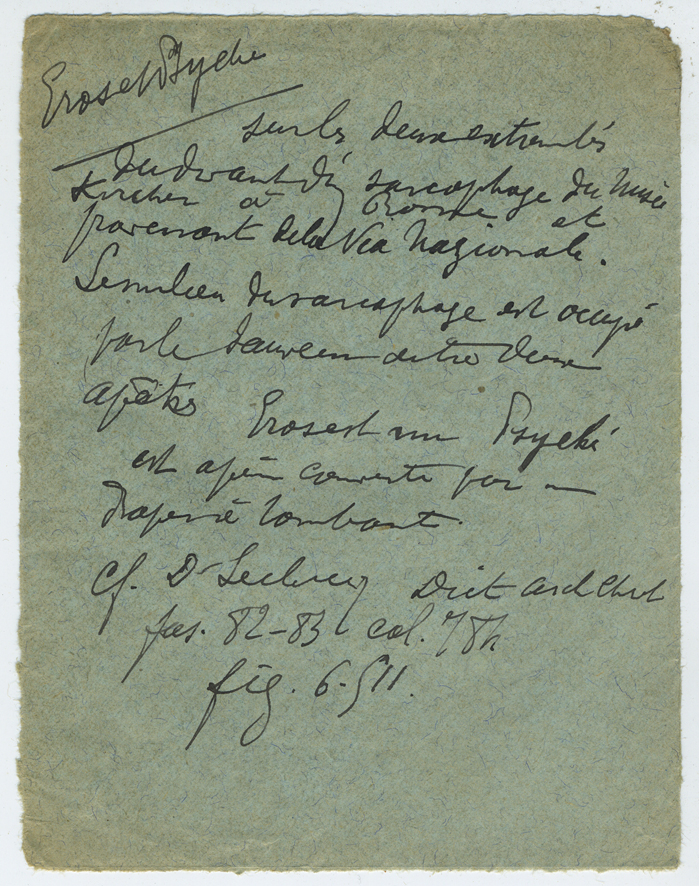 Eros et Psyché
sur les deux extrémités
du devant d'1 sarcophage du Musée
Kircher à Rome et
provenant de la Via Nazionale.
Le milieu du sarcophage est occupé
par le Sauveur entre deux
apôtres Eros est nu Psyché
est à peine couverte par une
draperie tombant.
cf. Dr Leclercq Dict arch Chret
fas. 82-83 col.
fig. 6.511.